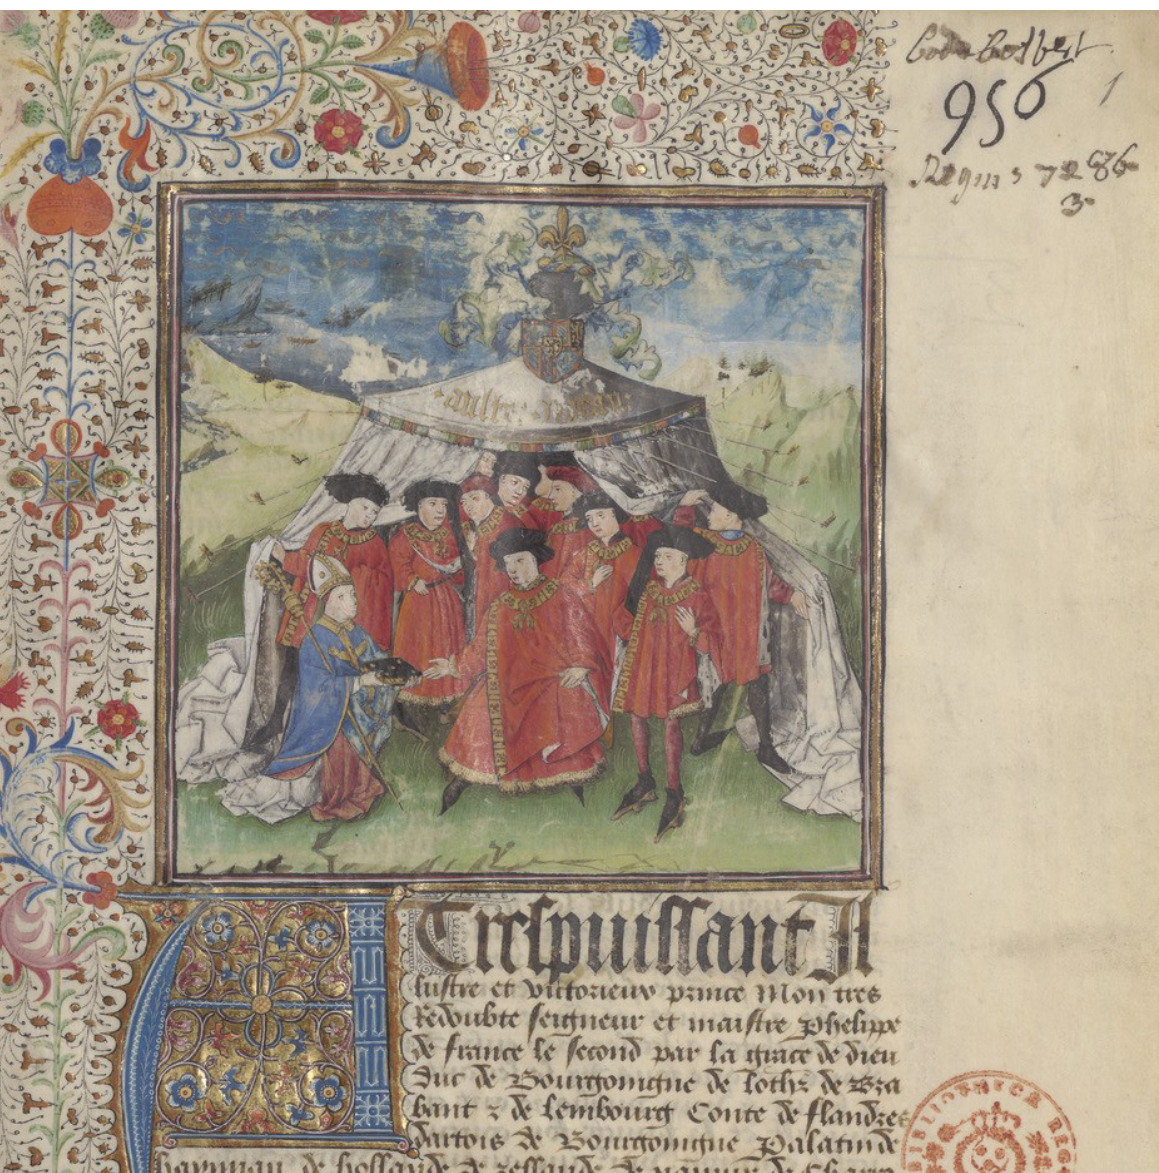 956
1
Regius 72 86
3
aultre
A Trespuissant Il
lustre et victorieux prince Mon tres
Redoubte seigneur et maistre Phelippe
de france le second par la grace de dieu
Duc de Bourgoingne de lothz de Bra
bant z de lembourg Conte de flandres
dartois de Bourgoingne Palatin de
haynnau de hollande de zellande de namur de
BIBLIOTHECA REG